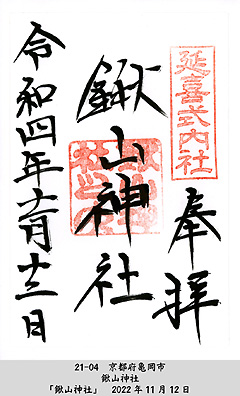 延喜式内社
奉拝
鍬山神社
令和四年十一月十二日
21-04 京都府亀岡市
鍬山神社
「鍬山神社」 2022年11月12日